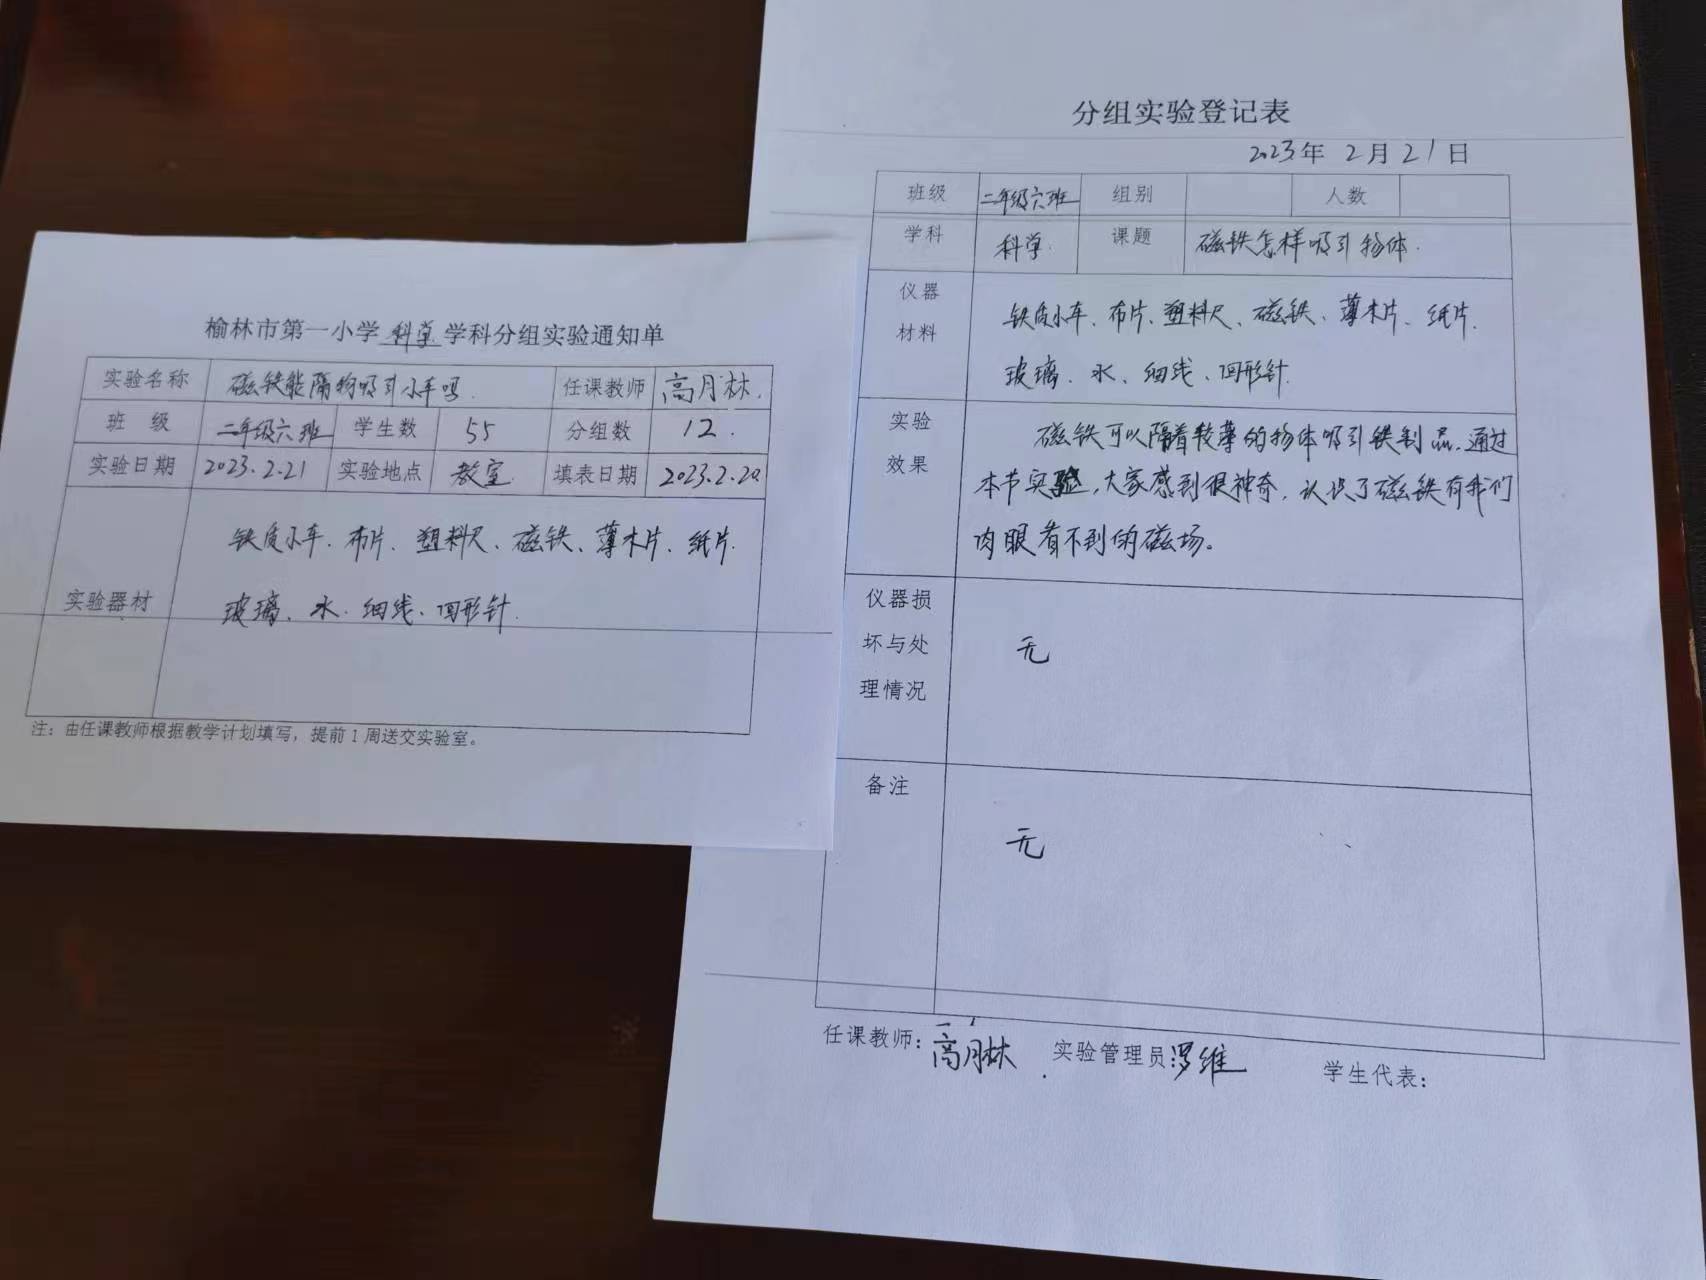 榆林市第一小学科学学科分组实验通知单
实验名称 磁铁能隔物吸引小车吗 任课教师 高月林
班 级 二年级六班 学生数 55 分组数 12
实验日期 2023.2.21 实验地点 教室 填表日期 2023.2.20
铁质小车、布片、塑料尺、磁铁、薄木片、纸片
实验器材 玻璃、水、细线、回形针
注：由任课教师根据教学计划填写，提前1周送交实验室。
分组实验登记表
2023年2月21日
班级 二年级六班 组别 人数
学科 科学 课题 磁铁怎样吸引物体.
仪器 铁质小车、布片、塑料尺、磁铁、薄木片、纸片.
材料 玻璃、水、细线、回形针
实验 磁铁可以隔着较薄的物体吸引铁制品.通过
效果 本节实验，大家感到很神奇，认识了磁铁有我们
肉眼看不到的磁场。
仪器损
坏与处 无
理情况
备注
无
任课教师：高月林 实验管理员：罗维 学生代表：